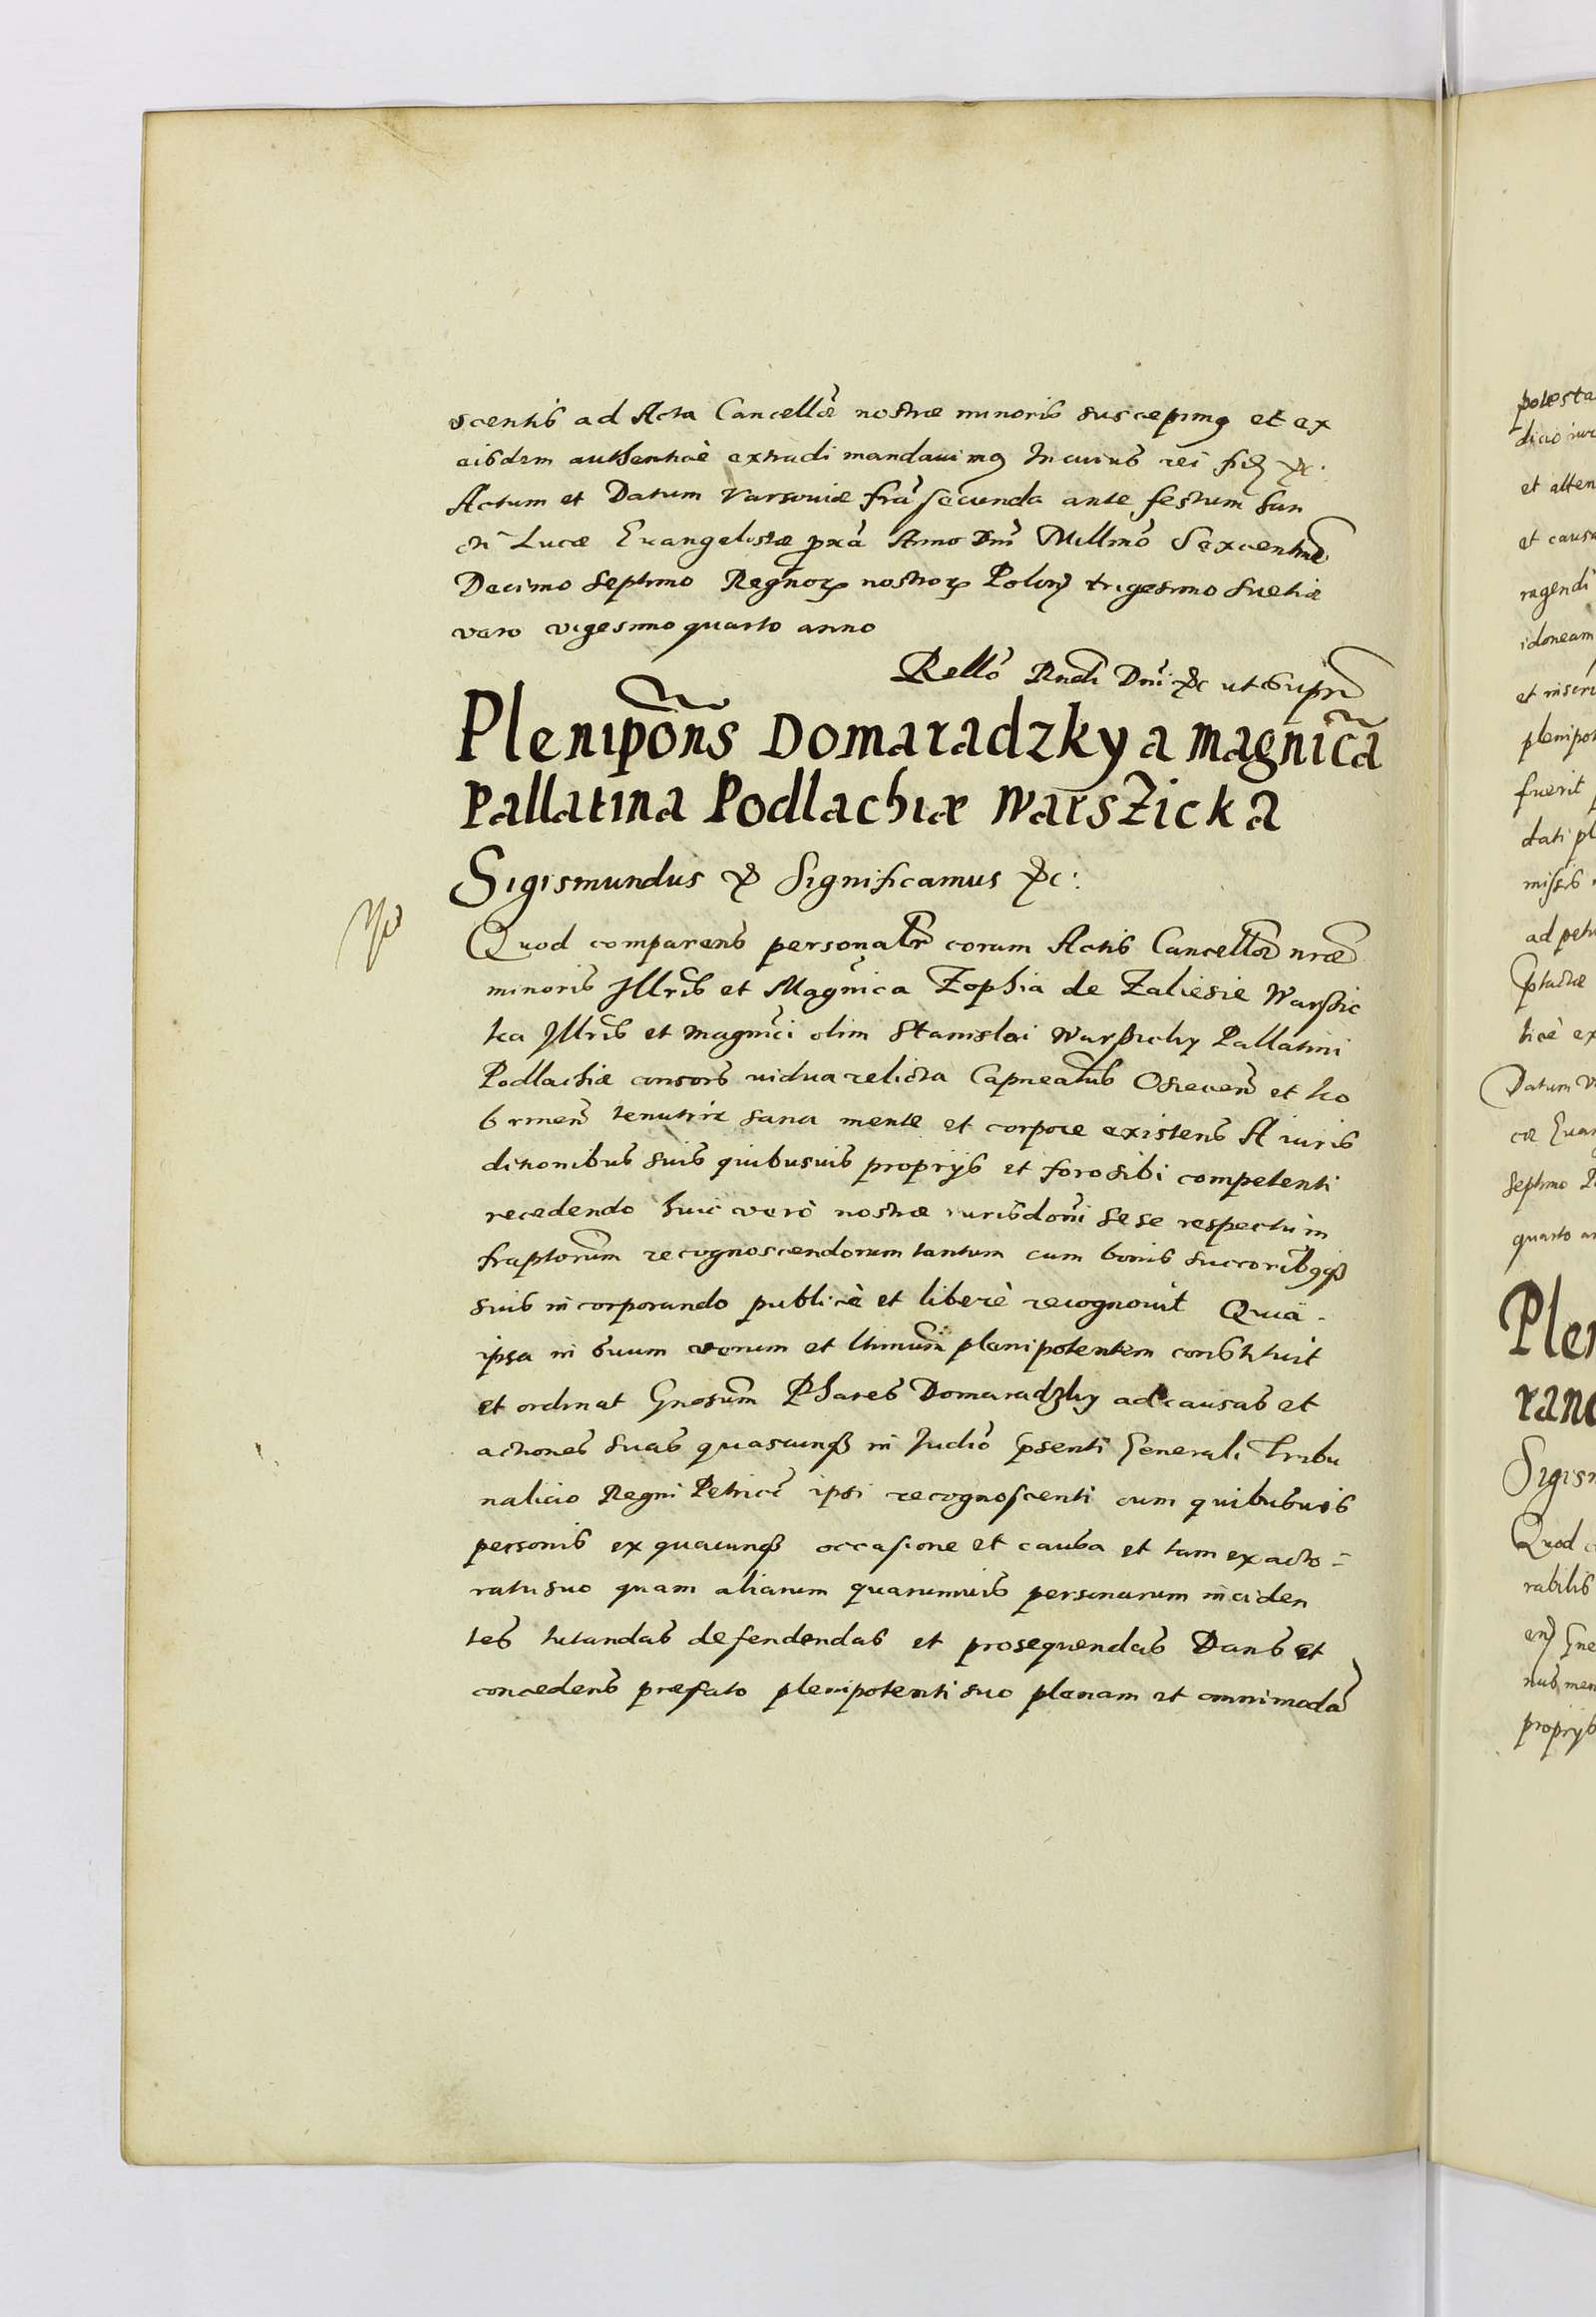 scentis ad Acta Cancellāe nostrae minoris suscepimꝰ et ex
eisdem authenticè extradi mandavimꝰ In cuius rei fidꝫ ꝛc.
Actum et Datum Varsoviæ friā secunda ante festum San
cti Lucæ Evangelistæ pxā Anno Dni Millmo Sexcentmo
Decimo Septimo Regnoꝝ nostroꝝ Polonꝫ trigesimo Suetiæ
vero vigesimo quarto anno
Rello Rndi Dni ꝛc ut supra
Plenipōns Domaradzky a magnīca
Pallatina Podlachiæ Warszicka
Sigismundus ꝛc Significamus ꝛc:
Quod comparens personalr coram Actis Cancellæ nræ
minoris Illris et Magnica Zophia de Zaliesie Warszic
ka Illris et magnici olim Stanislai Warszicky Pallatini
Podlachiæ consors vidua relicta Capneatus Osiecen et Ko
brinen tenutrix sana mente et corpore existens A iuris
ditionibus suis quibusvis proprijs et foro sibi competenti
recedendo huic verò nostræ iurisdoni sese respectu in
fraptorum recognoscendorum tantum cum bonis succoribꝰqꝫ
suis incorporando publicè et liberè recognovit Quia
ipsa in suum verum et ltimum plenipotentem constituit
et ordinat Gnosum Phares Domaradzky ad causas et
actiones suas quascunqꝫ in Judio psenti Generali Tribu
nalicio Regni Petricẽ ipsi recognoscenti cum quibusvis
personis ex quacunqꝫ occasione et causa et tam ex acto=
ratu suo quam aliarum quarumvis personarum inciden
tes tutandas defendendas et prosequendas Dans et
concedens præfato plenipotenti suo plenam et omnimodā
potesta
dicio iur
et atten
et causa
ragendi
idoneam
et inseri
plenipot
fuerit
dati pl
missis
ad peti
ptatæ
ticè ex
Datum V
cæ Evan
Septimo
quarto an
Plen
rano
Sigism
Quod
rabilis
enꝫ Gne
nus men
proprijs